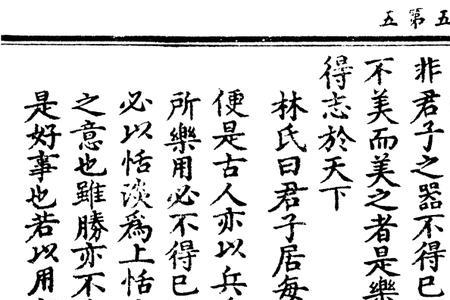 五第五
非君子之器不得已
不美而美之者是樂
得志於天下
林氏曰君子居每
便是古人亦以兵
所樂用必不得已
必以恬淡爲上恬
之意也雖勝亦不
是好事也若以用